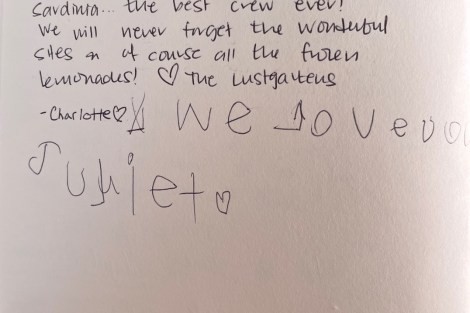 Sardinia... the best crew ever!
We will never forget the wonderful
sites n of course all the frozen
lemonades! ♡ The Lustgartens
-Charlotte♡ We love
Juliet♡